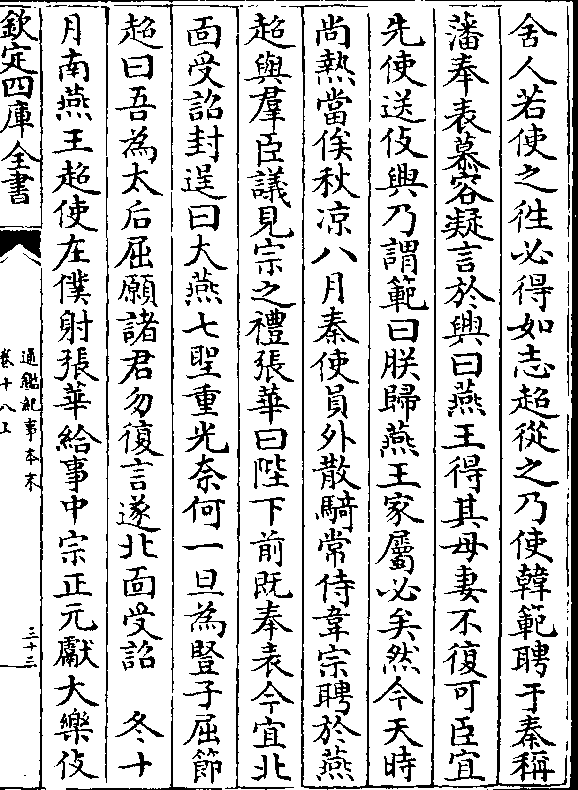 舍人若使之徃必得如志超從之乃使韓範聘于秦稱
藩奉表慕容凝言於興曰燕王得其母妻不復可臣宜
先使送伎興乃謂範曰朕歸燕王家屬必矣然今天時
尚熱當俟秋凉八月秦使員外散騎常侍韋宗聘於燕
超與羣臣議見宗之禮張華曰陛下前既奉表今宜北
面受詔封逞曰大燕七聖重光奈何一旦為豎子屈節
超曰吾為太后屈願諸君勿復言遂北面受詔　冬十
月南燕王超使左僕射張華給事中宗正元獻大樂伎
欽定四庫全書
通鑑紀事本末
卷十八上
三十三